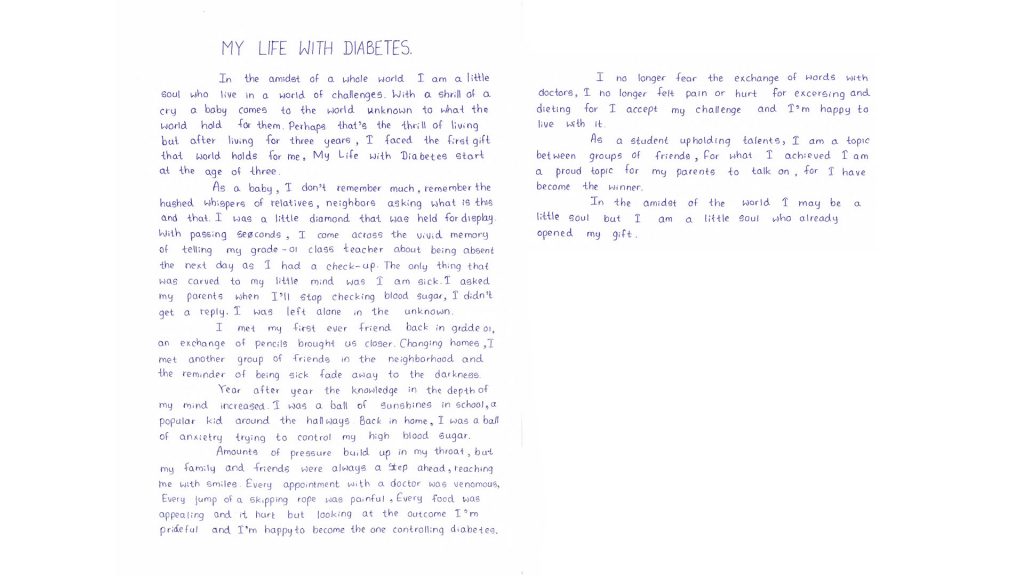 MY LIFE WITH DIABETES.
In the amidst of a whole world I am a little
soul who live in a world of challenges. With a shrill of a
cry a baby comes to the world unknown to what the
world hold for them. Perhaps that's the thrill of living
but after living for three years, I faced the first gift
that world holds for me, My Life with Diabetes start
at the age of three.
As a baby, I don't remember much, remember the
hushed whispers of relatives, neighbors asking what is this
and that. I was a little diamond that was held for display.
With passing seconds, I come across the vivid memory
of telling my grade-01 class teacher about being absent
the next day as I had a check-up. The only thing that
was carved to my little mind was I am sick. I asked
my parents when I'll stop checking blood sugar, I didn't
get a reply. I was left alone in the unknown.
I met my first ever friend back in grade 01,
an exchange of pencils brought us closer. Changing homes, I
met another group of friends in the neighborhood and
the reminder of being sick fade away to the darkness.
Year after year the knowledge in the depth of
my mind increased. I was a ball of sunshines in school, a
popular kid around the hallways Back in home, I was a ball
of anxietry trying to control my high blood sugar.
Amounts of pressure build up in my throat, but
my family and friends were always a step ahead, reaching
me with smiles. Every appointment with a doctor was venomous,
Every jump of a skipping rope was painful, Every food was
appealing and it hurt but looking at the outcome I'm
prideful and I'm happy to become the one controlling diabetes.
I no longer fear the exchange of words with
doctors, I no longer felt pain or hurt for excersing and
dieting for I accept my challenge and I'm happy to
live with it.
As a student upholding talents, I am a topic
between groups of friends, for what I achieved I am
a proud topic for my parents to talk on, for I have
become the winner.
In the amidst of the world I may be a
little soul but I am a little soul who already
opened my gift.